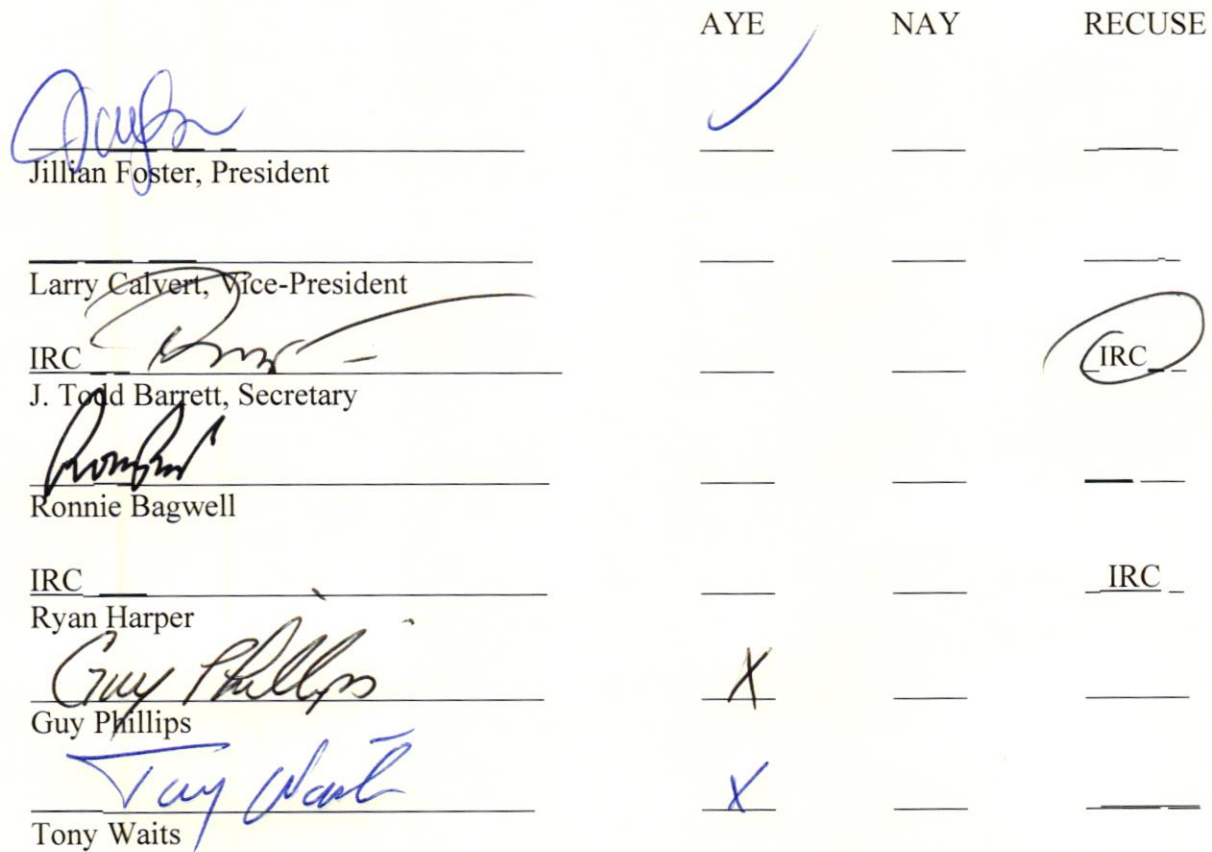 AYE NAY RECUSE
Jillian Foster, President
Larry Calvert, Vice-President
IRC IRC
J. Todd Barrett, Secretary
Ronnie Bagwell
IRC IRC
Ryan Harper
Guy Phillips X
Guy Phillips
Tony Waits X
Tony Waits